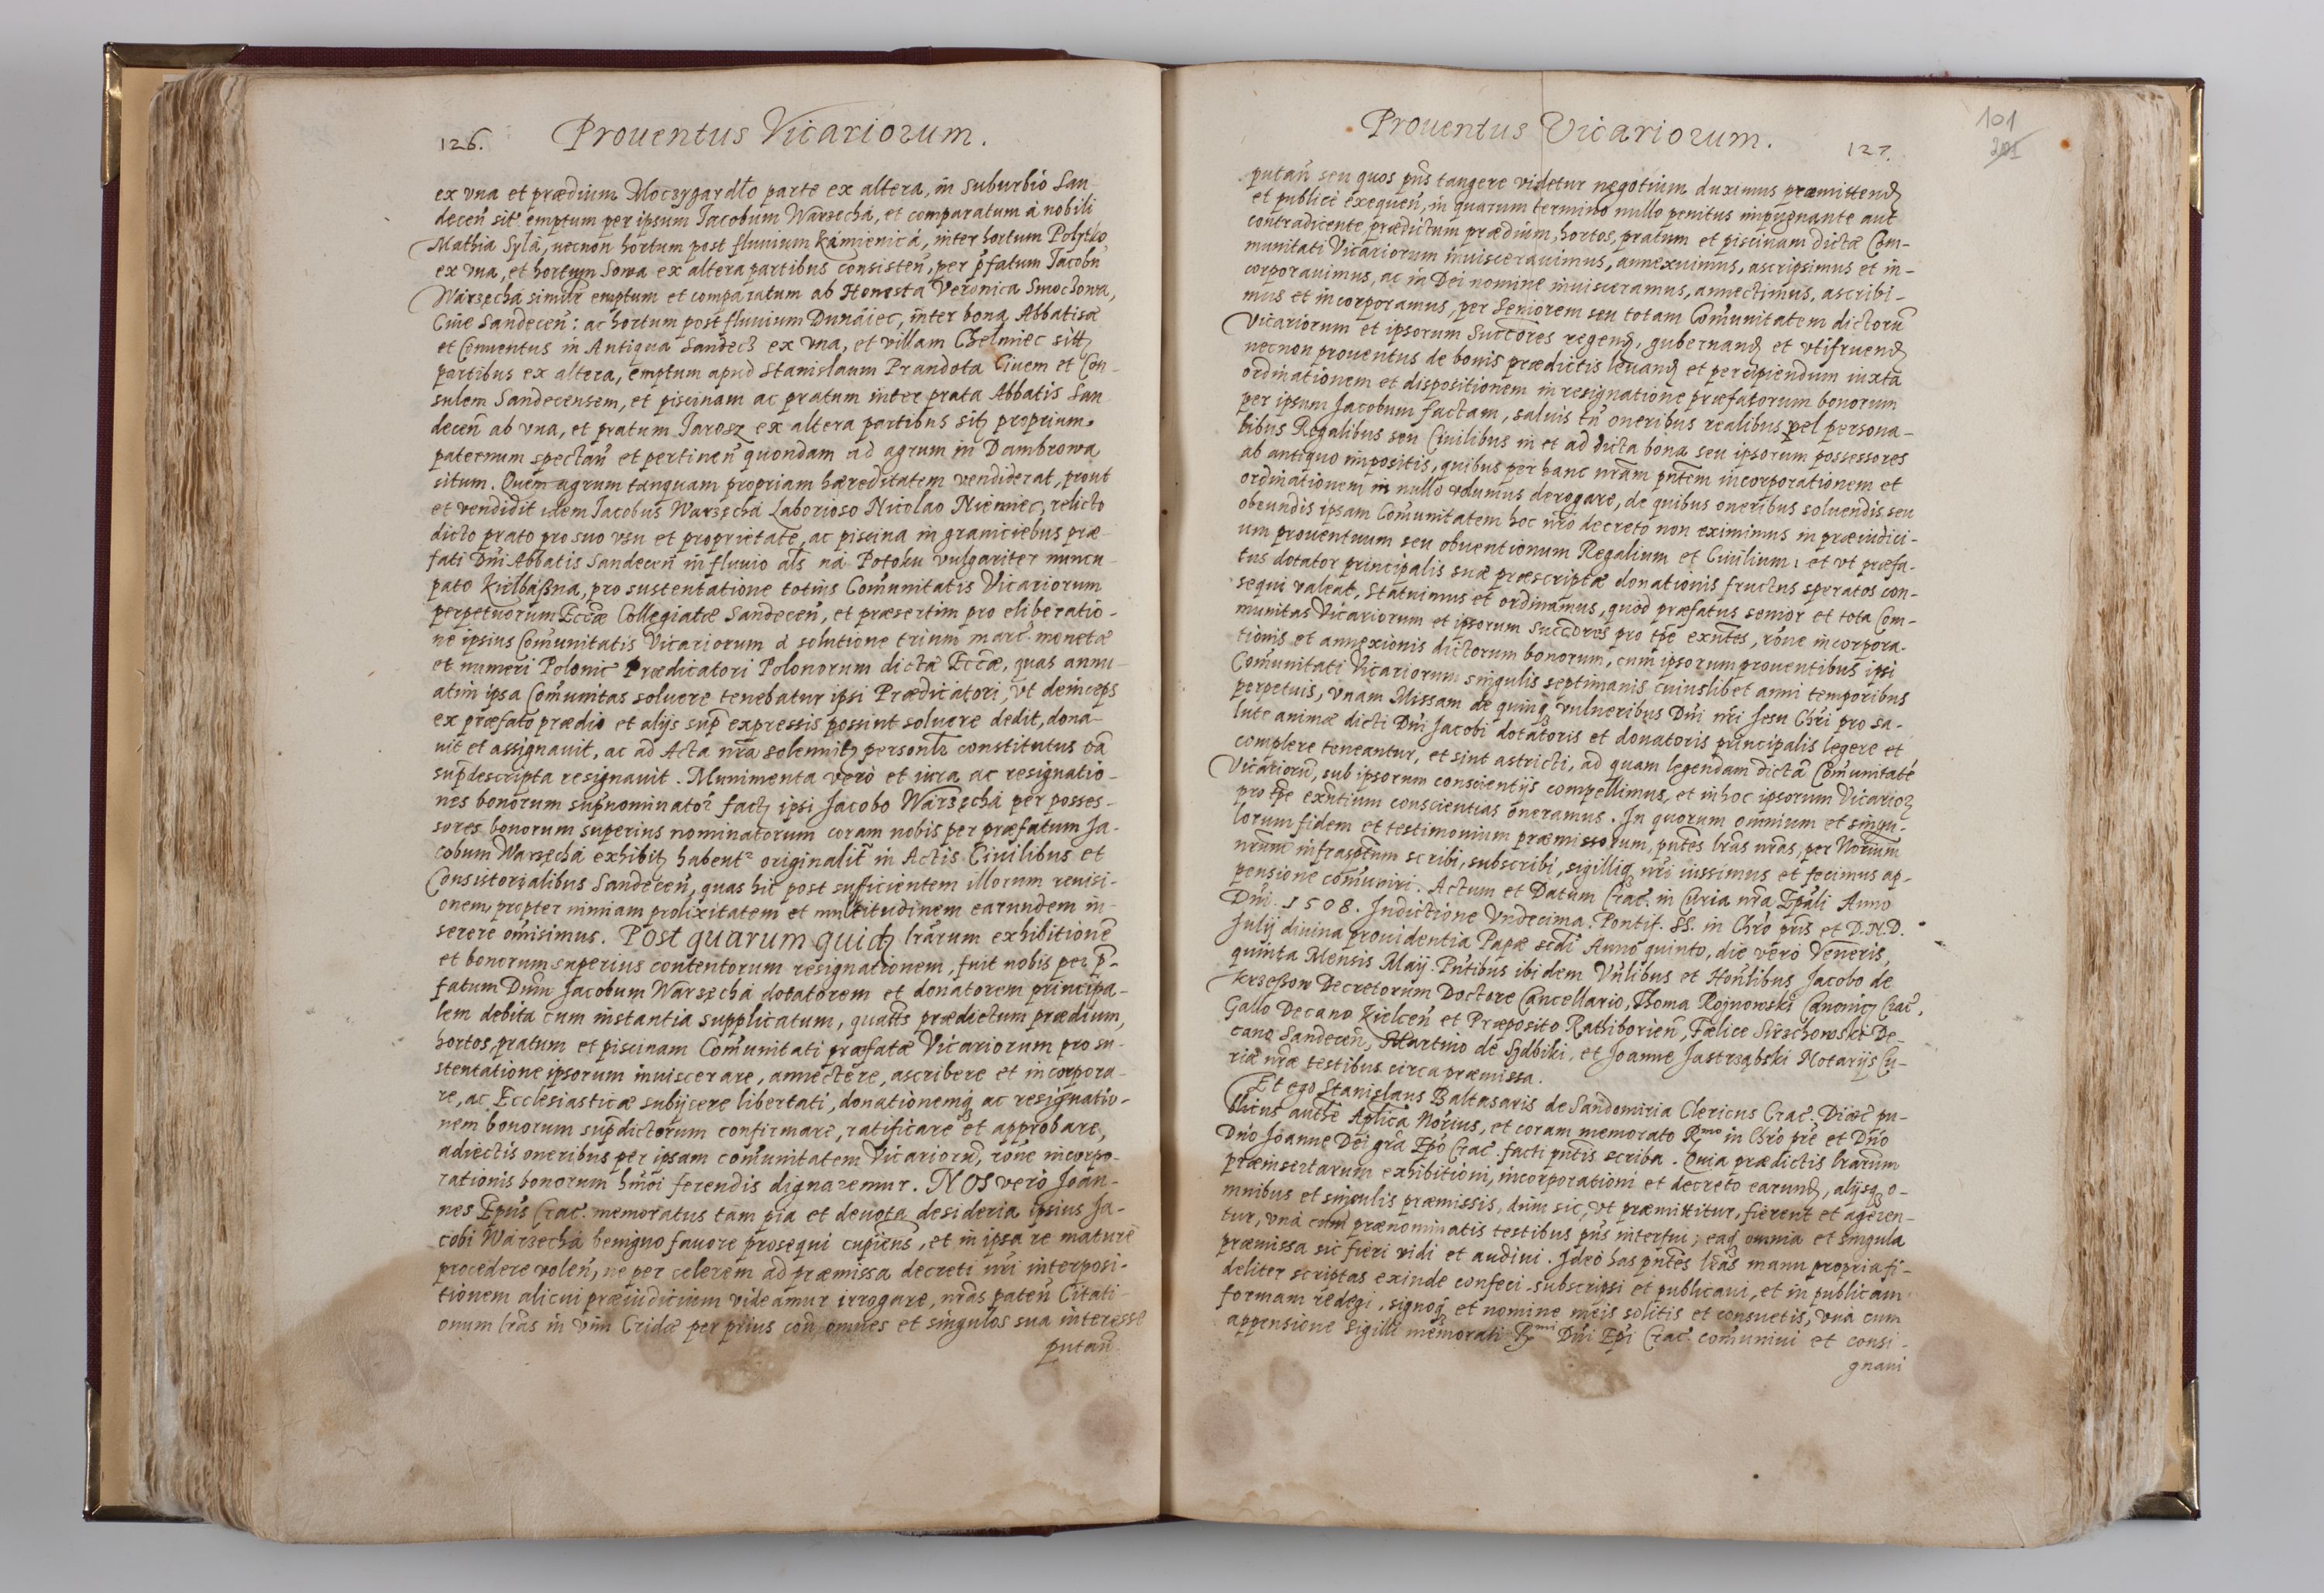 126. Prouentus Vicariorum.
ex vna et prædium Moczygardlo parte ex altera, in suburbio San-
decen̄ sit. emptum per ipsum Iacobum Warzecha, et comparatum à nobili
Mathia Syla, necnon hortum post fluuium Kamienica, inter hortum Polytko
ex vna, et hortum Sowa ex altera partibus consisten̄, per p̄fatum Iacobū
Warzecha similr̄ emptum et comparatum ab Honesta Veronica Smoczowa,
Ciue Sandecen̄: ac hortum post fluuium Dunaiec, inter bona Abbatisæ
et Conuentus in Antiqua Sandecz ex vna, et villam Chelmiec sitꝫ
partibus ex altera, emptum apud Stanislaum Prandota Ciuem et Con-
sulem Sandecensem, et piscinam ac pratum inter prata Abbatis San
decen̄ ab vna, et pratum Jarosz ex altera partibus sitꝫ proprium
paternum spectan̄ et pertinen̄ quondam ad agrum in Dambrowa
situm. Quem agrum tanquam propriam hæreditatem vendiderat, prout
et vendidit idem Iacobus Warzecha Laborioso Nicolao Niemiec, relicto
dicto prato pro suo vsu et proprietate, ac piscina in graniciebus præ-
fati Dn̄i Abbatis Sandecen̄ in fluuio al̄s na Potoku vulgariter nuncu-
pato Kielbaßna, pro sustentatione totius Com̄unitatis Vicariorum
perpetuorum Eccl̄æ Collegiatæ Sandecen̄, et præsertim pro eliberatio-
ne ipsius Com̄unitatis Vicariorum à solutione trium marc. monetæ
et numeri Polonic Prædicatori Polonorum dictæ Eccæ, quas annu-
atim ipsa Com̄unitas soluere tenebatur ipsi Prædicatori, vt deinceps
ex præfato prædio et alijs sup̄ expressis possint soluere dedit, dona-
uit et assignauit, ac ad Acta nr̄a solennitꝫ personl̄r constitutus oā
sup̄descripta resignauit. Munimenta verò et iura ac resignatio-
nes bonorum sup̄nominator̄ factꝫ ipsi Jacobo Warzecha per posses-
sores bonorum superius nominatorum coram nobis per præfatum Ja-
cobum Warzecha exhibitꝫ habentr originalit̄ in Actis Ciuilibus et
Consistorialibus Sandecen̄, quas hic post sufficientem illorum reuisi-
onem, propter nimiam prolixitatem et multitudinem earundem in-
serere om̄isimus. Post quarum quidꝫ lr̄arum exhibitionē
et bonorum superius contentorum resignationem, fuit nobis per p̄-
fatum Dn̄m Jacobum Warzecha dotatorem et donatorem principa-
lem debita cum instantia supplicatum, quatꝫs prædictum prædium,
hortos, pratum et piscinam Com̄unitati præfatæ Vicariorum pro su-
stentatione ipsorum inuiscerare, annectere, ascribere et incorpora-
re, ac Ecclesiasticæ subijcere libertati, donationemqꝫ ac resignatio-
nem bonorum sup̄dictorum confirmare, ratificare et approbare,
adiectis oneribus per ipsam com̄unitatem Vicariorū, rōne incorpo-
rationis bonorum hm̄oi ferendis dignaremur. NOS verò Joan-
nes Ep̄us Crac. memoratus tam pia et deuota desideria ipsius Ja-
cobi Warzecha benigno fauore prosequi cupiens, et in ipsa re maturē
procedere volen̄, ne per celerem ad præmissa decreti nr̄i interposi-
tionem alicui præiudicium videamur irrogare, nr̄as paten̄ Citati-
onum lr̄as in vim Cridæ per prius con̄ omnes et singulos sua interesse
putan̄
Prouentus Vicariorum. 127.
101
201
putan̄ seu quos pn̄s tangere videtur negotium duximus præmittendꝫ
et publicè exequen̄, in quarum termino nullo penitus impugnante aut
contradicente, prædictum prædium, hortos, pratum et piscinam dictæ Com-
munitati Vicariorum inuiscerauimus, annexuimus, ascripsimus et in-
corporauimus, ac in Dei nomine inuisceramus, annectimus, ascribi-
mus et incorporamus, per Seniorem seu totam Com̄unitatem dictorū
Vicariorum et ipsorum Succ̄ores regendꝫ, gubernandꝫ et vtifruendꝫ
necnon prouentus de bonis prædictis leuandꝫ et percipiendum iuxta
ordinationem et dispositionem in resignatione præfatorum bonorum
per ipsum Jacobum factam, saluis tn̄ oneribus realibus vel persona-
libus Regalibus seu Ciuilibus in et ad dicta bona seu ipsorum possessores
ab antiquo impositis, quibus per hanc nr̄am pn̄tem incorporationem et
ordinationem in nullo volumus derogare, de quibus oneribus soluendis seu
obeundis ipsam Com̄unitatem hoc nr̄o decreto non eximimus in præiudici-
um prouentuum seu obuentionum Regalium et Ciuilium: et vt præfa-
tus dotator principalis suæ præscriptæ donationis fructus speratos con-
sequi valeat, statuimus et ordinamus, quòd præfatus senior et tota Com-
munitas Vicariorum et ipsorum Succ̄ores pro tp̄e exn̄tes, rōne incorpora-
tionis et annexionis dictorum bonorum, cum ipsorum prouentibus ipsi
Com̄unitati Vicariorum singulis septimanis cuiuslibet anni temporibus
perpetuis, vnam Missam de quinqꝫ vulneribus Dn̄i nr̄i Jesu Chr̄i pro sa-
lute animæ dicti Dn̄i Jacobi dotatoris et donatoris principalis legere et
complere teneantur, et sint astricti, ad quam legendam dictā Com̄unitatē
Vicariorū, sub ipsorum conscientijs compellimus, et in hoc ipsorum Vicarioꝝ
pro tp̄e exn̄tium conscientias oneramus. In quorum omnium et singu-
lorum fidem et testimonium præmissorum, pn̄tes lr̄as nr̄as, per Not̄rium
nr̄um infrasp̄tum scribi, subscribi, sigilliqꝫ nr̄i iussimus et fecimus ap-
pensione com̄uniri. Actum et Datum Crac. in Curia nr̄a Ep̄ali Anno
Dn̄i. 1508. Indictione Vndecima. Pontif. SS. in Chr̄o pr̄is et D.N.D.
Julij diuina prouidentia Papæ scdi Anno quinto, die verò Veneris,
quinta Mensis Maij. Pn̄tibus ibidem Vn̄libus et Hon̄libus Jacobo de
Erzeßow Decretorum Doctore Cancellario, Thoma Rojnowski Canonicꝫ Crac.
Gallo Decano Kielcen̄ et Præposito Rathiborien̄, Fælice Strschowski De-
cano Sandecen̄, Martino de Sydbiki, et Joanne Jastrząbski Notarijs Cu-
riæ nr̄æ testibus circa præmissa.
Et ego Stanislaus Baltasaris de Sandomiria Clericus Crac. Diœc. pu-
blicus auth̄e Aplica Nor̄ius, et coram memorato Rmo in Chr̄o pr̄e et Dn̄o
Dn̄o Joanne Dei gr̄a Ep̄o Crac. facti pn̄tis scriba. Quia prædictis lr̄arum
præinsertarum exhibitioni, incorporationi et decreto earundꝫ, alijsqꝫ o-
mnibus et singulis præmissis, dum sic, vt præmittitur, fierent et ageren-
tur, vnà cum prænominatis testibus pn̄s interfui, eaqꝫ omnia et singula
præmissa sic fieri vidi et audiui. Ideò has pn̄tes lr̄as manu propria fi-
deliter scriptas exinde confeci. subscripsi et publicaui, et in publicam
formam redegi, signoqꝫ et nomine meis solitis et consuetis, vnà cum
appensione Sigilli memorati Rmi Dn̄i Ep̄i Crac. com̄uniui et consi-
gnaui